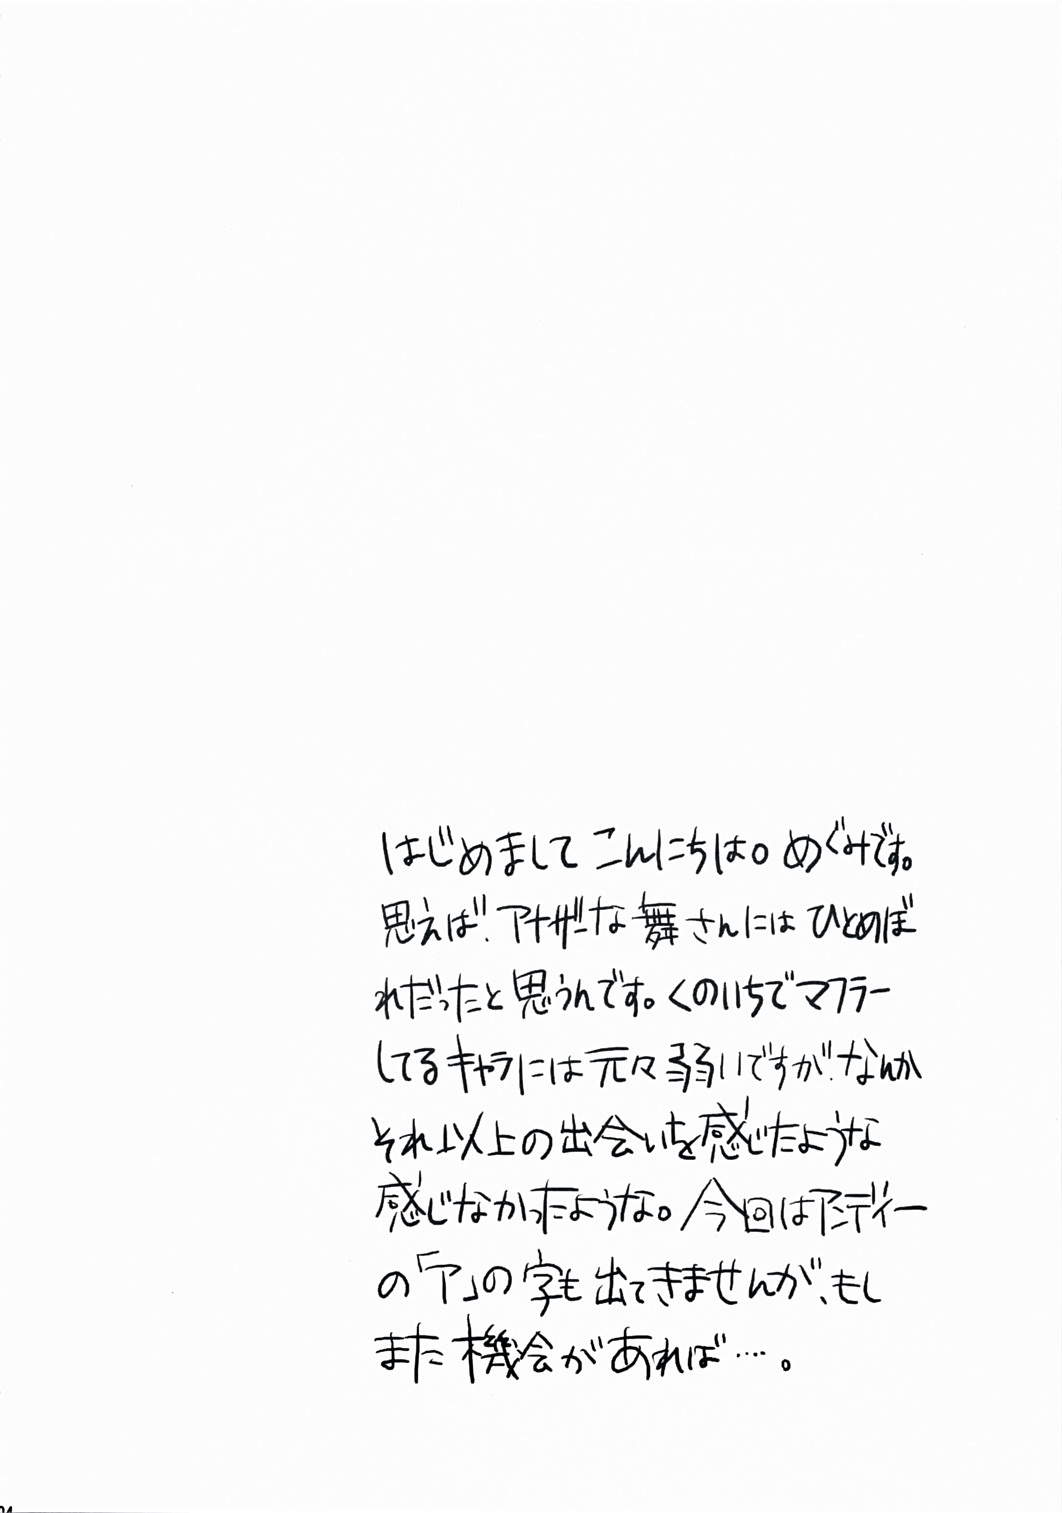 はじめまして こんにちは。めぐみです。
思えば、アナザーな舞さんにはひとめぼ
れだったと思うんです。くのいちでマフラー
してるキャラには元々弱いですが、なんか
それ以上の出会いを感じたような
感じなかったような。今回はアンディー
の「ア」の字も出てきませんが、もし
また機会があれば‥‥。